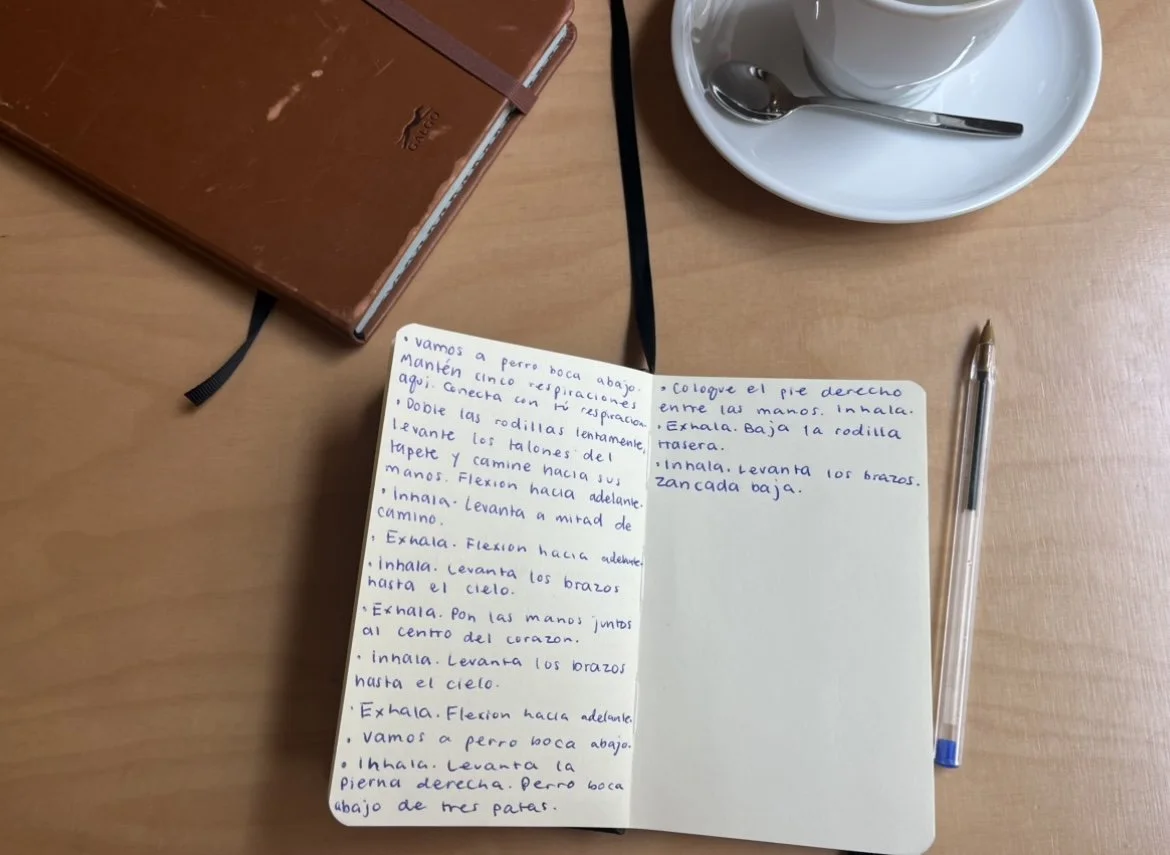 GALGO
• Vamos a perro boca abajo.
Mantén cinco respiraciones
aquí. Conecta con tú respiración
• Doble las rodillas lentamente,
levante los talones del
tapete y camine hacia sus
manos. Flexion hacia adelante.
• Inhala. Levanta a mitad de
camino.
• Exhala. Flexion hacia adelante.
• Inhala. Levanta los brazos
hasta el cielo.
• Exhala. Pon las manos juntos
al centro del corazon.
• Inhala. Levanta los brazos
hasta el cielo.
• Exhala. Flexion hacia adelante.
• Vamos a perro boca abajo.
• Inhala. Levanta la
pierna derecha. Perro boca
abajo de tres patas.
• Coloque el pie derecho
entre las manos. Inhala.
• Exhala. Baja la rodilla
trasera.
• Inhala. Levanta los brazos.
Zancada baja.